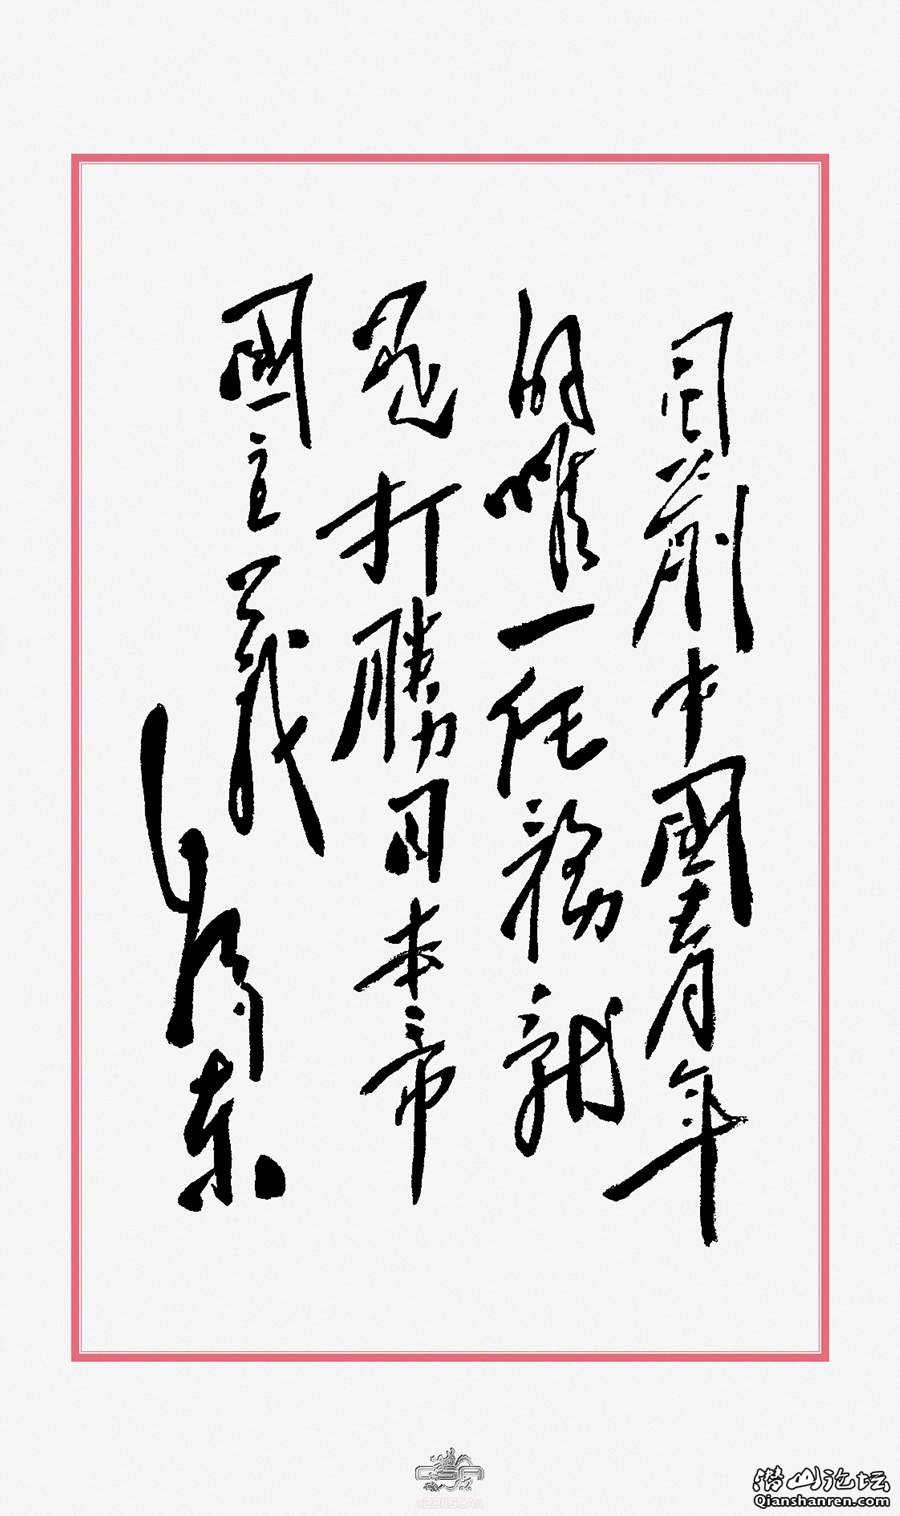 目前中國青年
的唯一任務就
是打勝日本帝
國主義
毛澤东
潜山论坛
Qianshanren.com